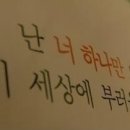 난 너 하나만
세상에 부러